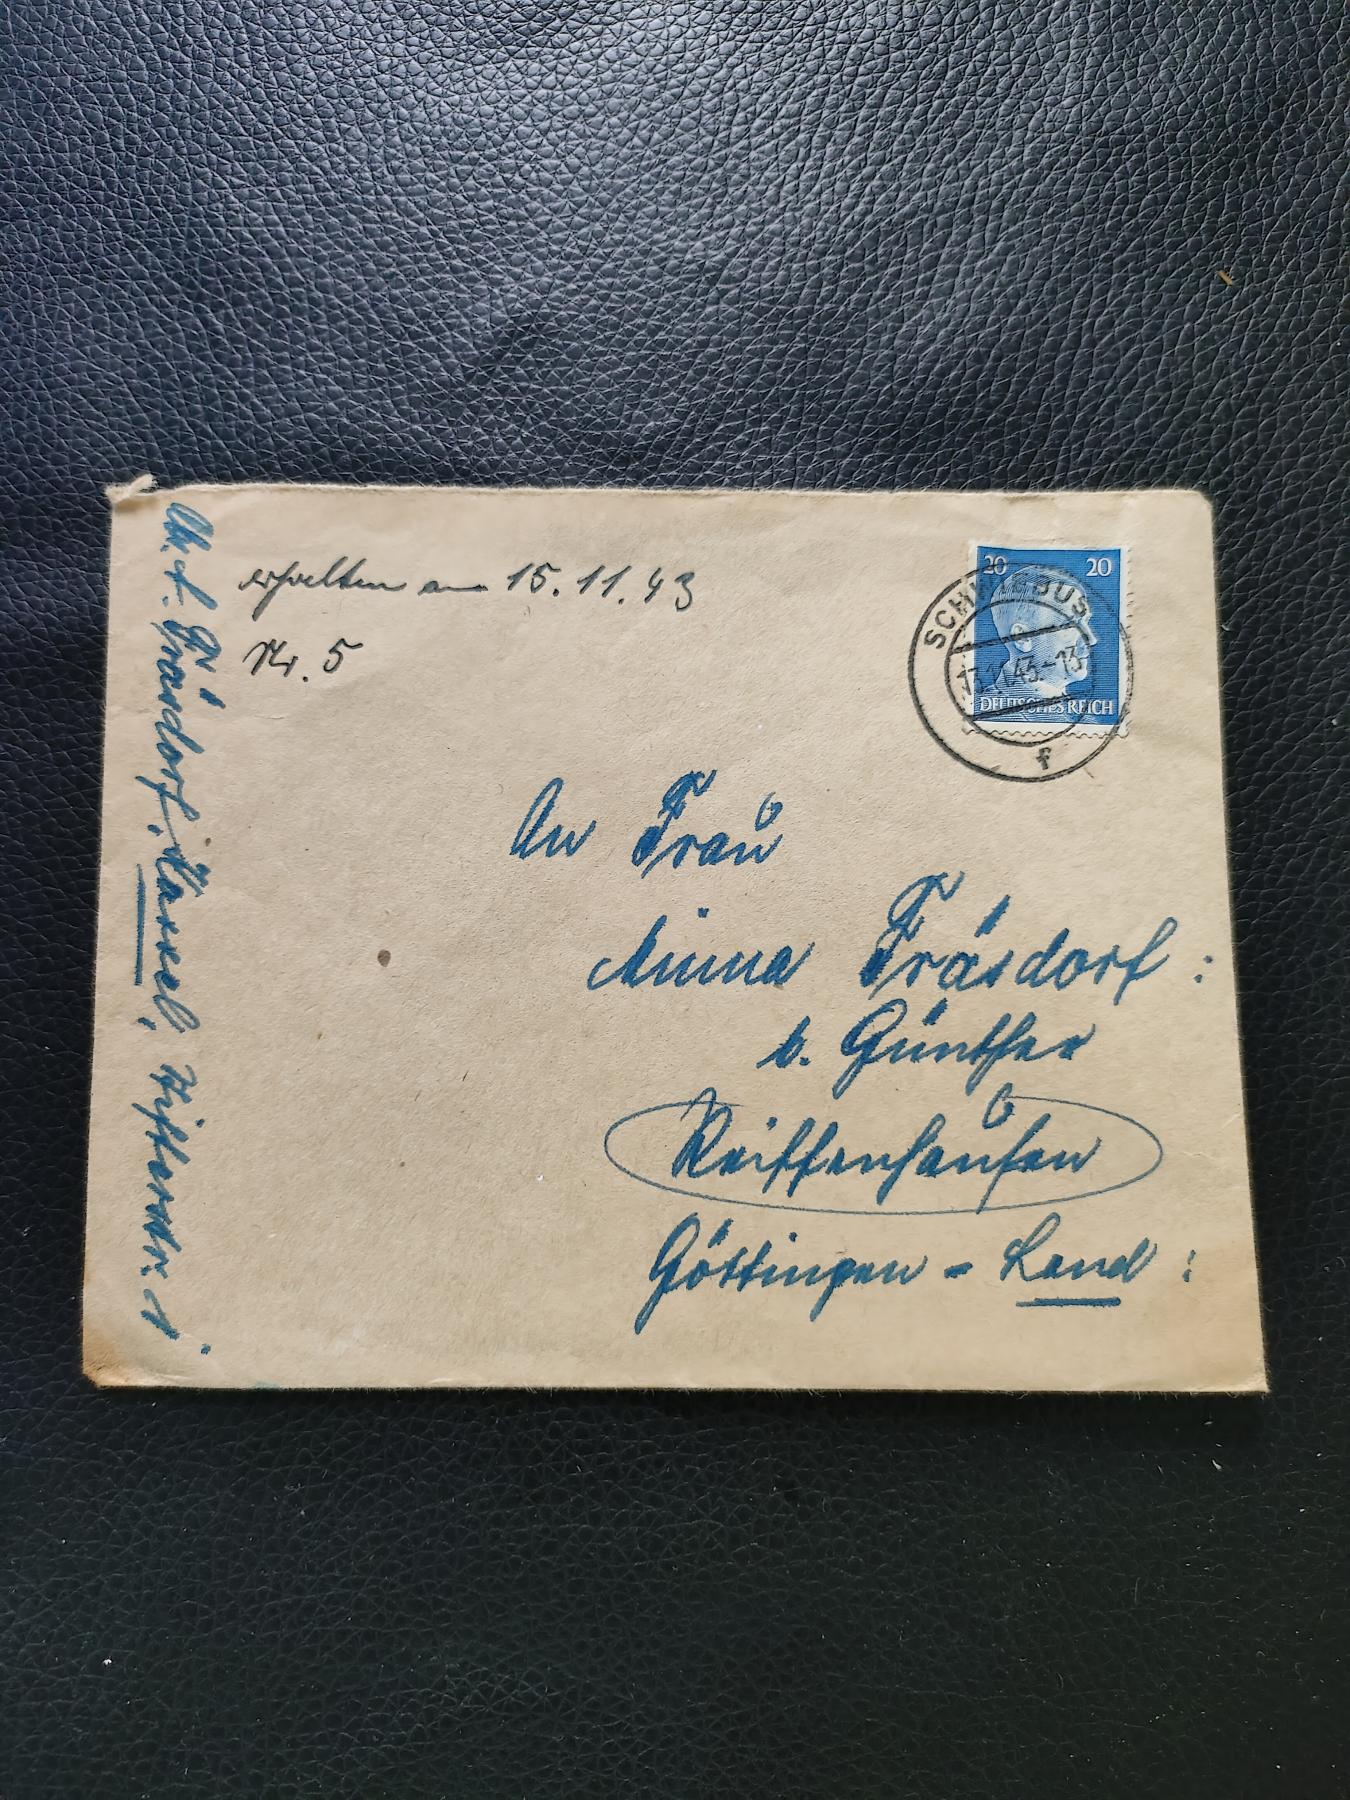 erhalten am 15.11.43
Nr. 5
20 20
DEUTSCHES REICH
SCHWIEBUS
13.11.43.-13
f
An Frau
Minna Fräsdorf:
b. Günther
Reiffenhausen
Göttingen - Land:
Abs. Fräsdorf,